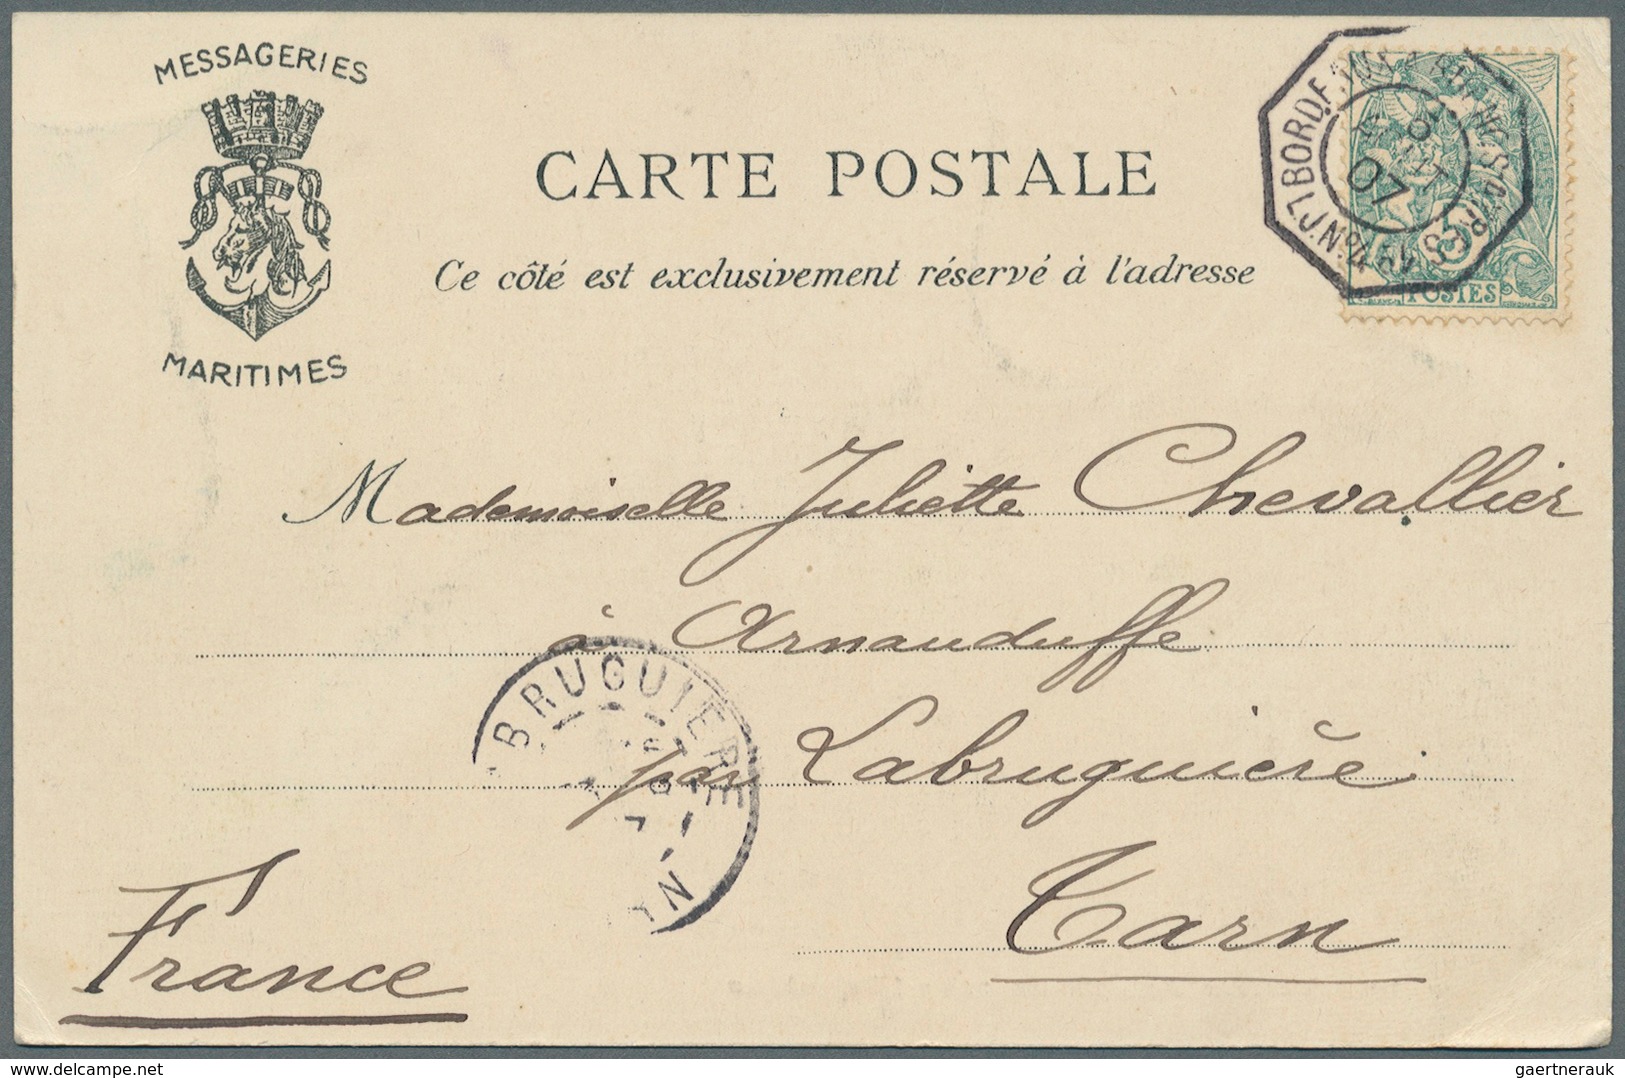 MESSAGERIES
MARITIMES
CARTE POSTALE
Ce côté est exclusivement réservé à l'adresse
BORDEAUX A BUENOS-AYRES
L.J.N°4
07
5
POSTES
Mademoiselle Juliette Chevallier
à Arnauduffe
par Labruguière
Tarn
France
BRUGUIERE
delcampe.net
gaertnerauk